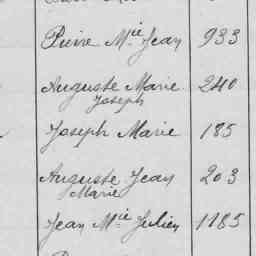 Pierre Mie Jean 933
Auguste Marie 240
Joseph
Joseph Marie 185
Auguste Jean 203
Marie
Jean Mie Julien 1185